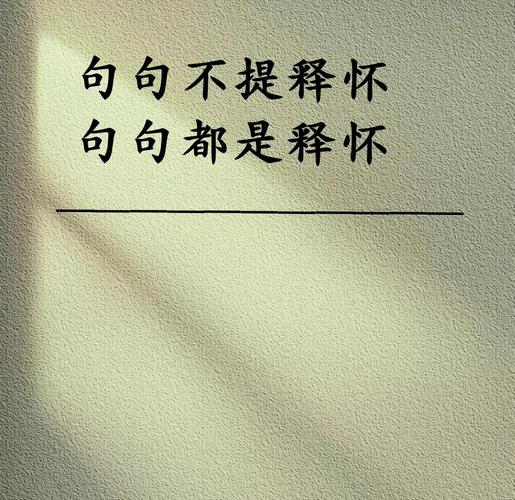 句句不提释怀
句句都是释怀